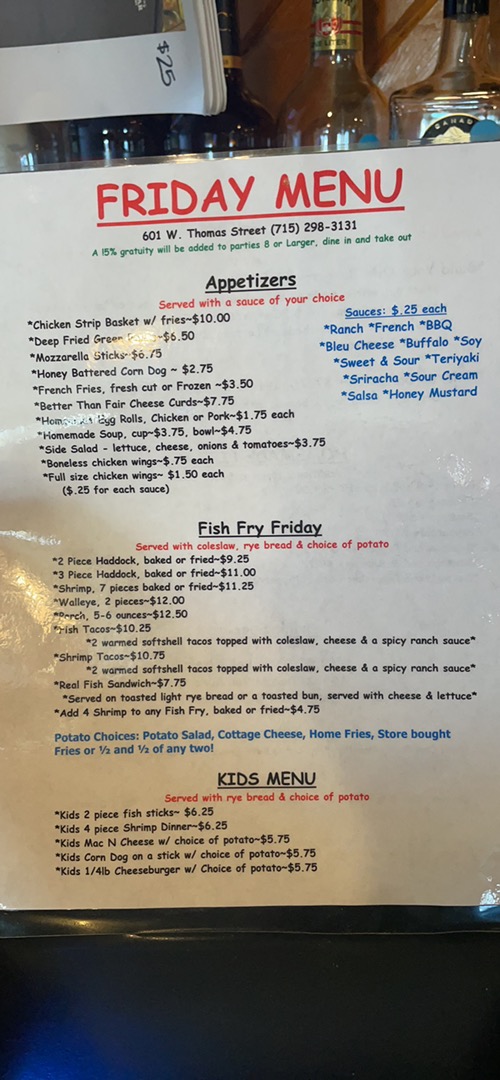 $25
FRIDAY MENU
601 W. Thomas Street (715) 298-3131
A 15% gratuity will be added to parties 8 or Larger, dine in and take out
Appetizers
Served with a sauce of your choice
*Chicken Strip Basket w/ fries~$10.00
*Deep Fried Green ~$6.50
*Mozzarella Sticks~$6.75
*Honey Battered Corn Dog ~ $2.75
*French Fries, fresh cut or Frozen ~$3.50
*Better Than Fair Cheese Curds~$7.75
*Homemade Egg Rolls, Chicken or Pork~$1.75 each
*Homemade Soup, cup~$3.75, bowl~$4.75
*Side Salad - lettuce, cheese, onions & tomatoes~$3.75
*Boneless chicken wings~$.75 each
*Full size chicken wings~ $1.50 each
($.25 for each sauce)
Sauces: $.25 each
*Ranch *French *BBQ
*Bleu Cheese *Buffalo *Soy
*Sweet & Sour *Teriyaki
*Sriracha *Sour Cream
*Salsa *Honey Mustard
Fish Fry Friday
Served with coleslaw, rye bread & choice of potato
*2 Piece Haddock, baked or fried~$9.25
*3 Piece Haddock, baked or fried~$11.00
*Shrimp, 7 pieces baked or fried~$11.25
*Walleye, 2 pieces~$12.00
*Perch, 5-6 ounces~$12.50
*Fish Tacos~$10.25
*2 warmed softshell tacos topped with coleslaw, cheese & a spicy ranch sauce*
*Shrimp Tacos~$10.75
*2 warmed softshell tacos topped with coleslaw, cheese & a spicy ranch sauce*
*Real Fish Sandwich~$7.75
*Served on toasted light rye bread or a toasted bun, served with cheese & lettuce*
*Add 4 Shrimp to any Fish Fry, baked or fried~$4.75
Potato Choices: Potato Salad, Cottage Cheese, Home Fries, Store bought
Fries or ½ and ½ of any two!
KIDS MENU
Served with rye bread & choice of potato
*Kids 2 piece fish sticks~ $6.25
*Kids 4 piece Shrimp Dinner~$6.25
*Kids Mac N Cheese w/ choice of potato~$5.75
*Kids Corn Dog on a stick w/ choice of potato~$5.75
*Kids 1/4lb Cheeseburger w/ Choice of potato~$5.75